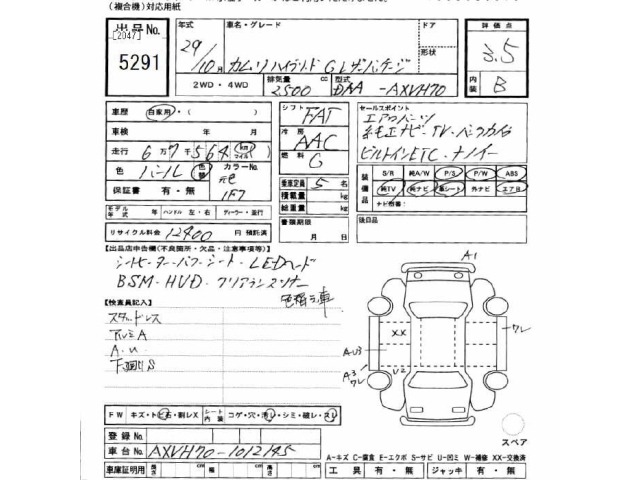 (複合機)対応用紙
出品No.
[2047]
5291
29/10月
車名・グレード
カムリハイブリッド Gレザーパッケージ
ドア
形状
評価点
3.5
内装
B
2WD・4WD
排気量
2500 cc
型式
DAA-AXVH70
車歴 自家用・( )
車検 年 月
走行 6万7千564 km マイル
色 パール 色替 カラーNo.
元色
1F7
保証書 有・無
モデル年式 年 ハンドル 左・右 ディーラー・並行
リサイクル料金 12400 円 預託済
シフト FAT
冷房 AAC
燃料 G
乗車定員 5 名
積載量 kg
総重量 kg
書類期限
月 日
セールスポイント
エアロパーツ
純正ナビ・TV・バックカメラ
ビルトインETC・ナノイー
装備品
S/R 純A/W P/S P/W ABS
純TV 純ナビ 革シート 外ナビ エアB
ナビ指導( )
後日品
【出品店申告欄(不良箇所・欠品・注意事項等)】
シートヒーター・パワーシート・LEDヘッド
BSM・HUD・クリアランスソナー
色替え車
【検査員記入】
スタッドレス
アルミA
A.U
下廻りS
A1
ワレ
XX
AU3
A3
ワレ
U2
FW キズ・トビ石・割レX
シート内装 コゲ・穴・汚レ・シミ・破レ・スレ
スペア
登録No.
車台No. AXVH70-1012145
車庫証明用 長さ cm 幅 cm 高さ cm
A-キズ C-腐食 E-エクボ S-サビ U-凹ミ W-補修 XX-交換済
工具 有・無 ジャッキ 有・無